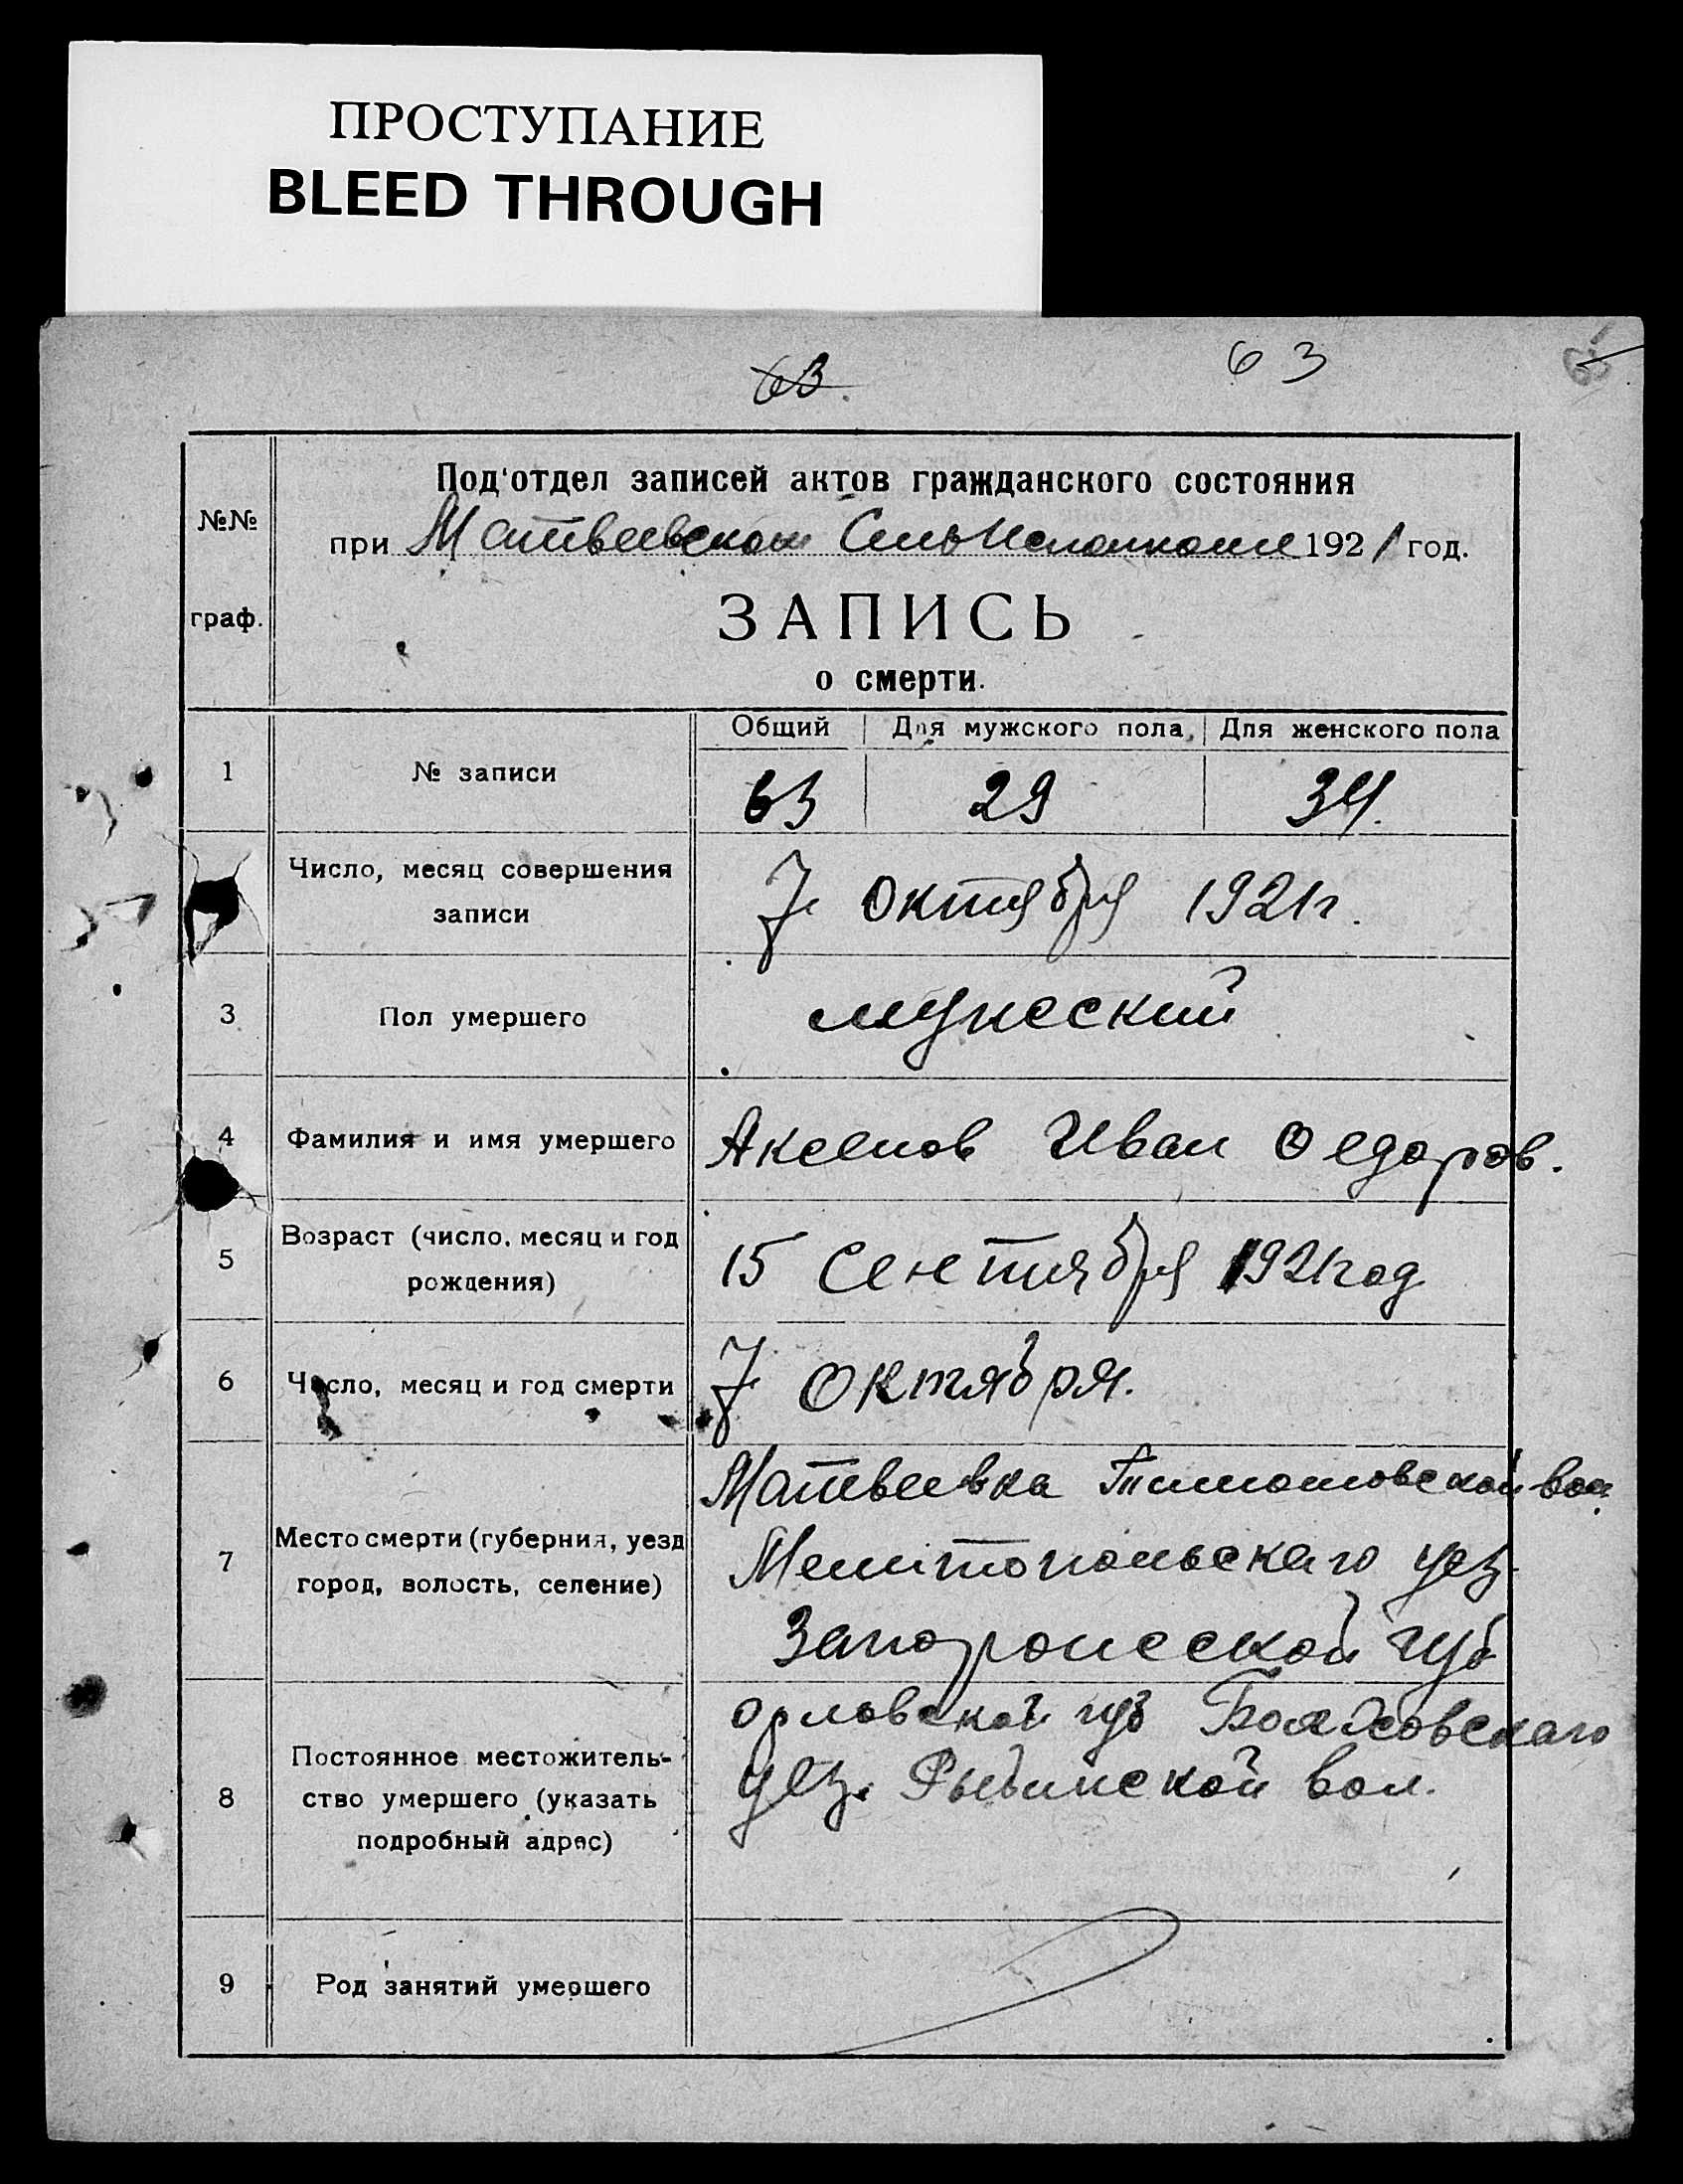 ПРОСТУПАНИЕ
BLEED THROUGH
63.
63
Под'отдел записей актов гражданского состояния
№№
при Матвеевском СельИсполкоме 1921 год.
граф.
ЗАПИСЬ
о смерти.
Общий Для мужского пола Для женского пола
1 № записи 63 29 34.
Число, месяц совершения
записи
7 октября 1921г.
3 Пол умершего мужеский
4 Фамилия и имя умершего Аксенов Иван Федоров.
Возраст (число, месяц и год
5 15 Сентября 1921год
рождения)
6 Число, месяц и год смерти 7 октября.
Матвеевка Тимошовской вол.
Место смерти (губерния, уезд
7 Мелитопольскаго уез
город, волость, селение)
Запорожеской губ
орловской губ
Постоянное местожитель-
уез. вол.
8 ство умершего (указать
подробный адрес)
9 Род занятий умершего